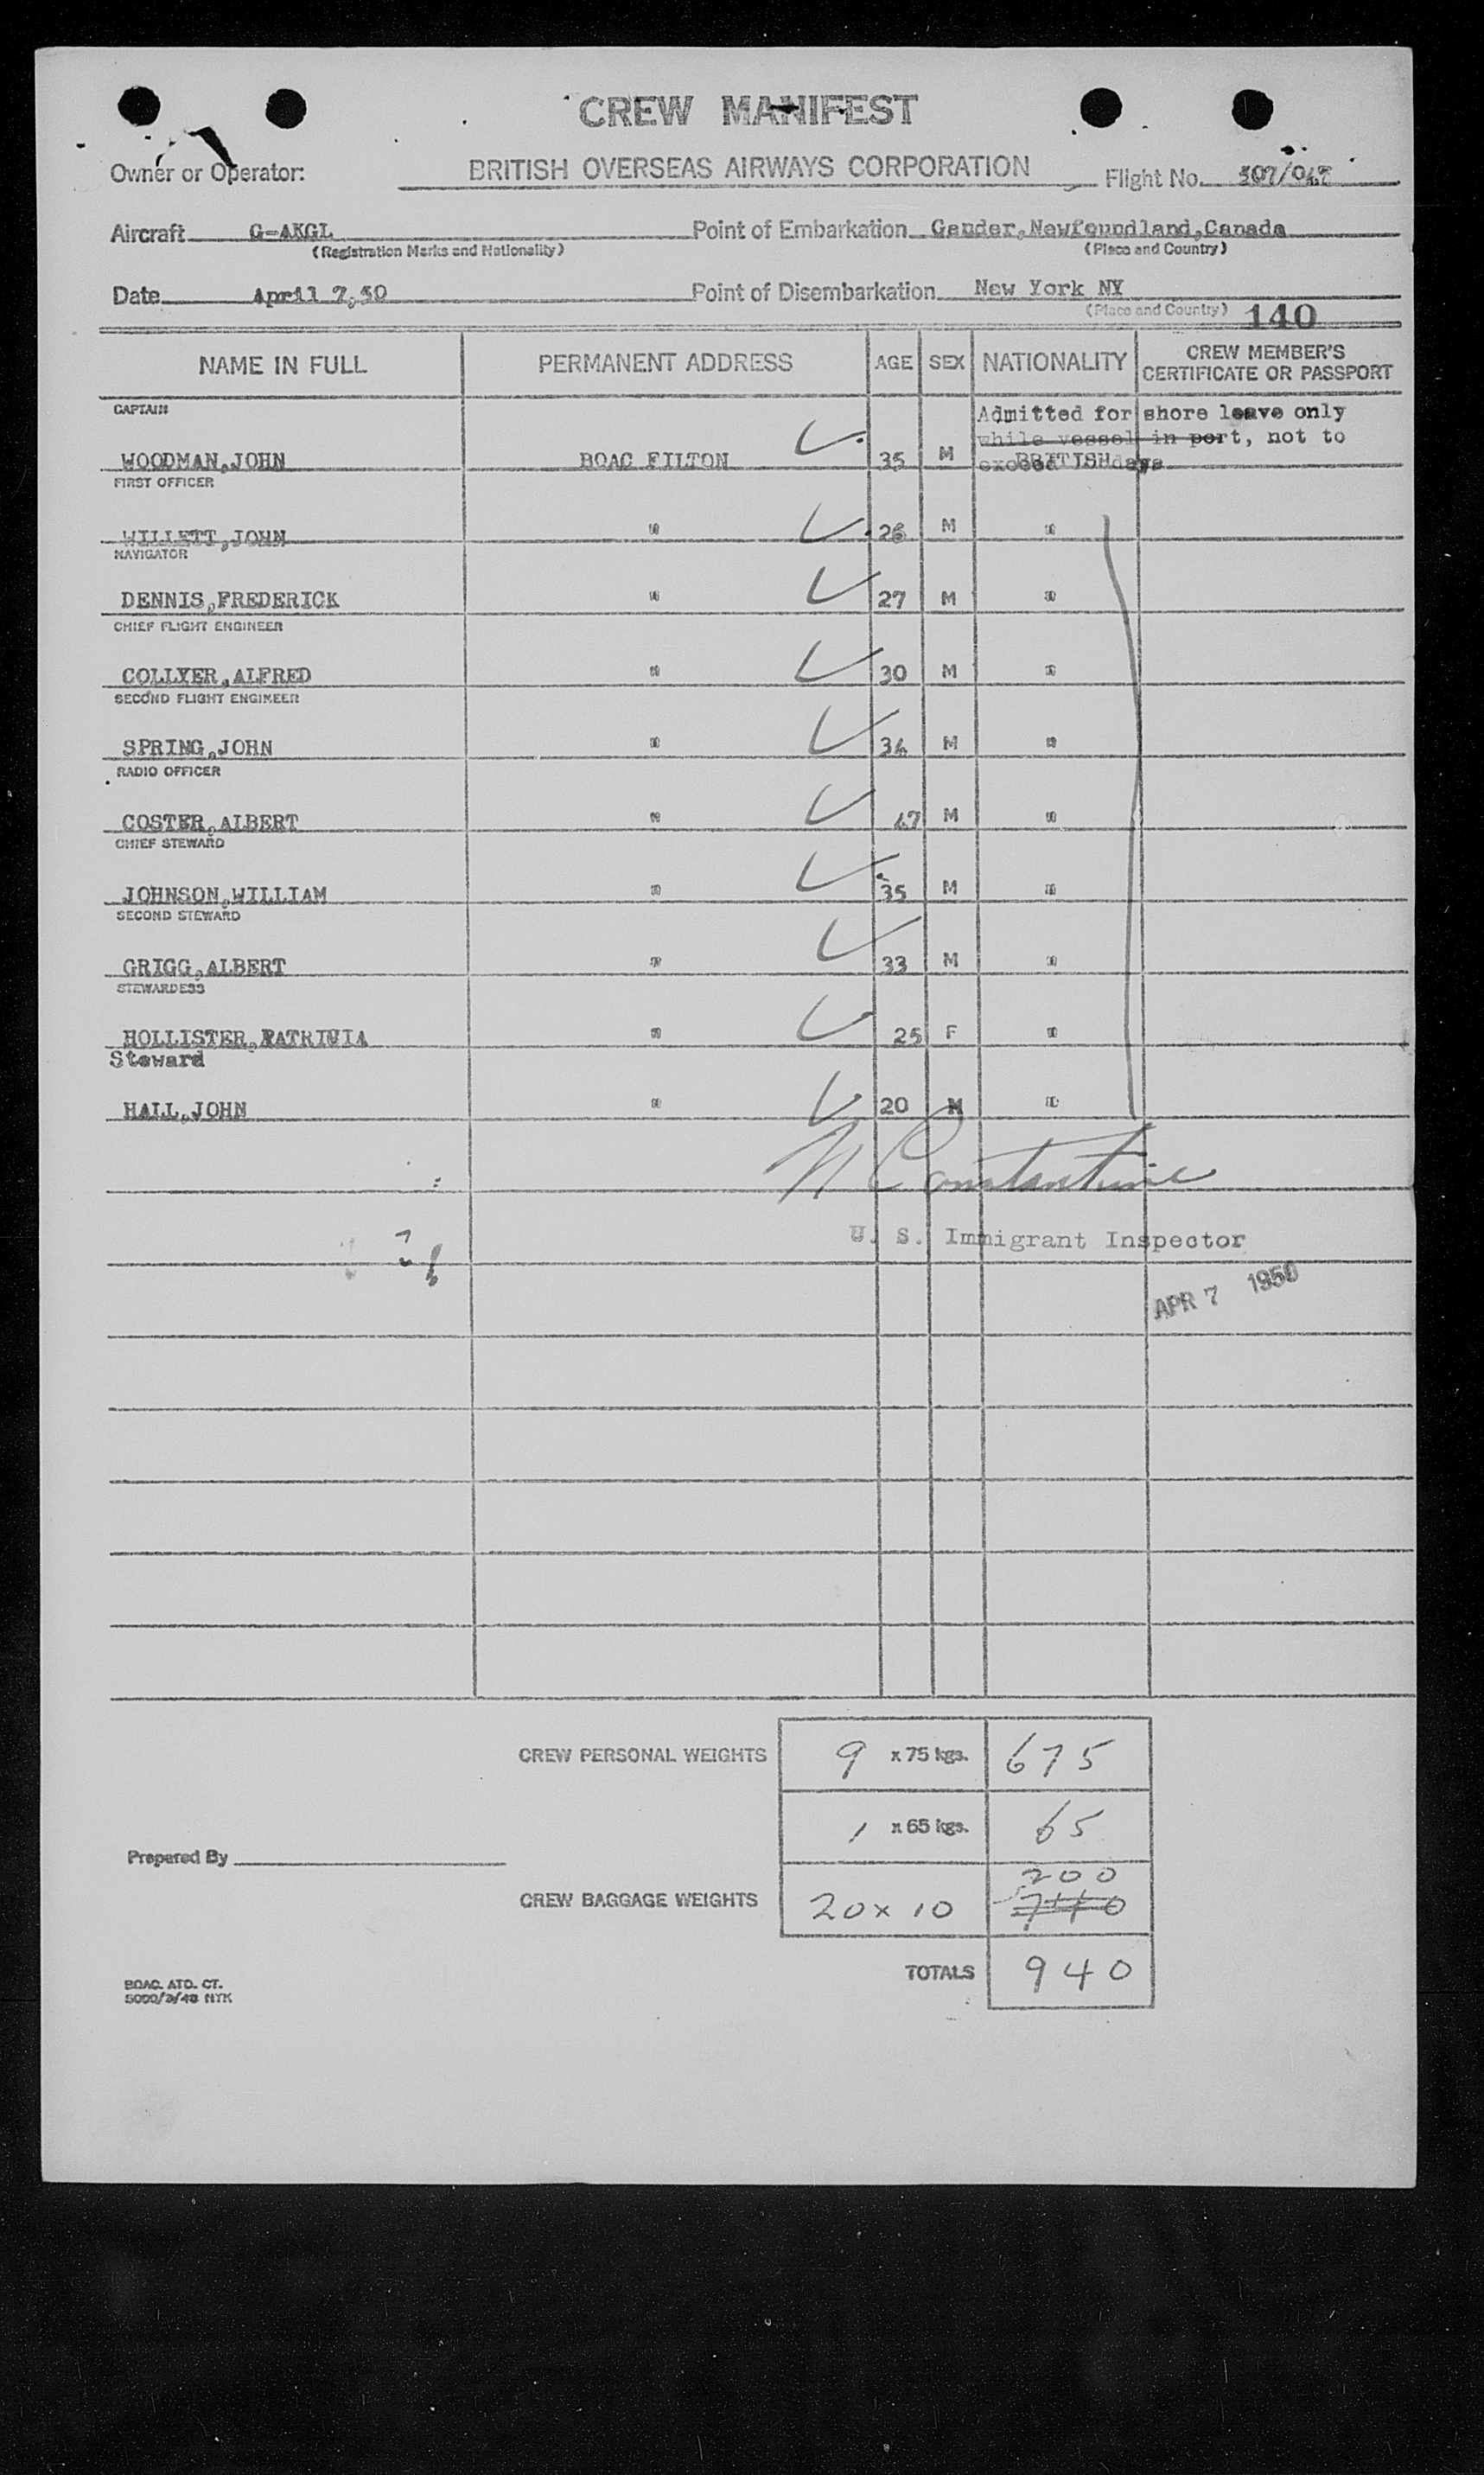 CREW MANIFEST
Owner or Operator: BRITISH OVERSEAS AIRWAYS CORPORATION Flight No. 507/047
Aircraft G-AKGL Point of Embarkation Gander, Newfoundland, Canada
(Registration Marks and Nationality) (Place and Country)
Date April 7,50 Point of Disembarkation New York NY
(Place and Country) 140
NAME IN FULL PERMANENT ADDRESS AGE SEX NATIONALITY CREW MEMBER'S CERTIFICATE OR PASSPORT
CAPTAIN Admitted for shore leave only
while vessel in port, not to
exceed days
WOODMAN,JOHN BOAC FILTON 35 M BRITISH
FIRST OFFICER
WILLETT,JOHN " 26 M "
NAVIGATOR
DENNIS,FREDERICK " 27 M "
CHIEF FLIGHT ENGINEER
COLLYER,ALFRED " 30 M "
SECOND FLIGHT ENGINEER
SPRING,JOHN " 34 M "
RADIO OFFICER
COSTER,ALBERT " 47 M "
CHIEF STEWARD
JOHNSON,WILLIAM " 35 M "
SECOND STEWARD
GRIGG,ALBERT " 33 M "
STEWARDESS
HOLLISTER,PATRICIA " 25 F "
Steward
HALL,JOHN " 20 M "
N Constantine
U. S. Immigrant Inspector
APR 7 1950
CREW PERSONAL WEIGHTS 9 x 75 kgs. 675
1 x 65 kgs. 65
Prepared By
200
CREW BAGGAGE WEIGHTS 20 x 10 740
TOTALS 940
BOAC. ATD. CT.
5000/3/48 NYK